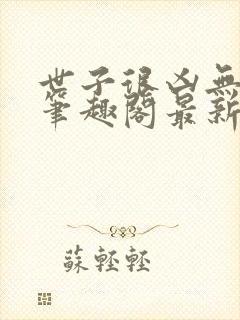 世子很凶無
筆趣閣最新
蘇輕輕